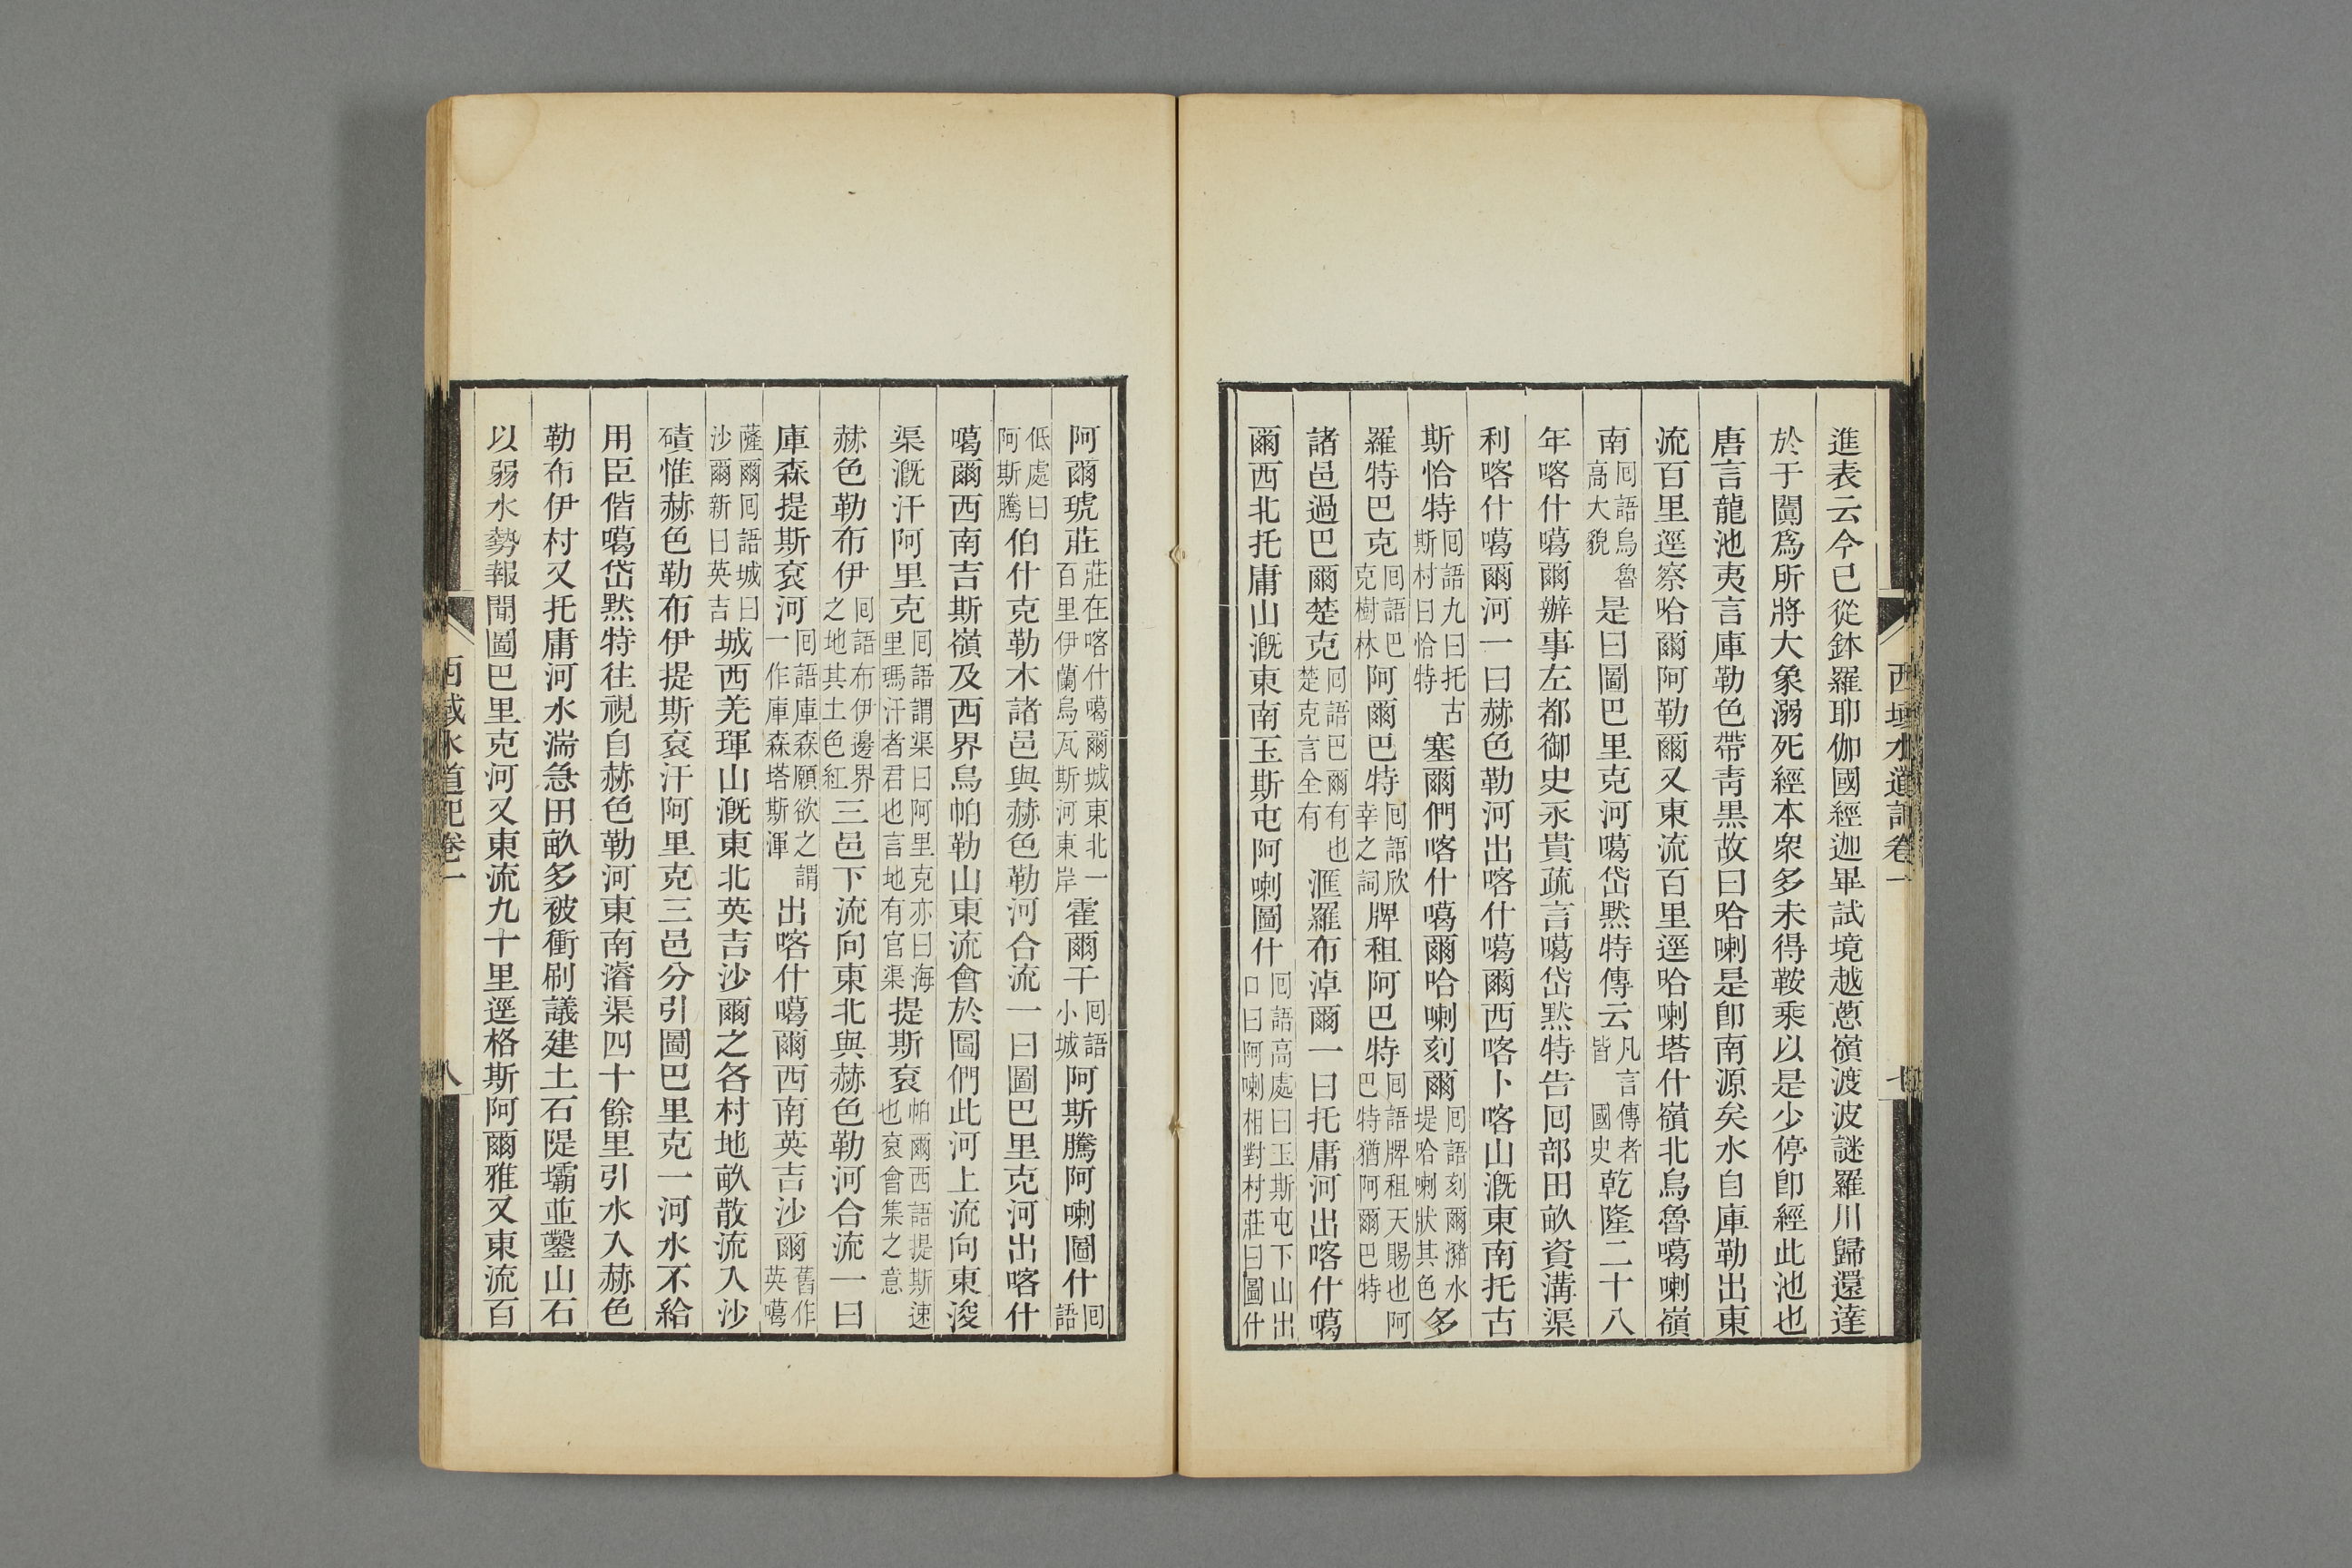 西域水道記卷一
七
進表云今已從鉢羅耶伽國經迦畢試境越蔥嶺渡波謎羅川歸還達
於于闐爲所將大象溺死經本衆多未得鞍乘以是少停卽經此池也
唐言龍池夷言庫勒色帶青黑故曰哈喇是卽南源矣水自庫勒出東
流百里逕察哈爾阿勒爾又東流百里逕哈喇塔什嶺北烏魯噶喇嶺
南回語烏魯高大貌是曰圖巴里克河噶岱默特傳云凡言傳者皆國史乾隆二十八
年喀什噶爾辦事左都御史永貴疏言噶岱默特告回部田畝資溝渠
利喀什噶爾河一曰赫色勒河出喀什噶爾西喀卜喀山漑東南托古
斯恰特回語九曰托古斯村曰恰特塞爾們喀什噶爾哈喇刻爾回語刻爾瀦水堤哈喇狀其色多
羅特巴克回語巴克樹林阿爾巴特回語欣幸之詞牌租阿巴特回語牌租天賜也阿巴特猶阿爾巴特
諸邑過巴爾楚克回語巴爾有也楚克言全有滙羅布淖爾一曰托庸河出喀什噶
爾西北托庸山漑東南玉斯屯阿喇圖什回語高處曰玉斯屯下山出口曰阿喇相對村莊曰圖什
阿爾琥莊莊在喀什噶爾城東北一百里伊蘭烏瓦斯河東岸霍爾干回語小城阿斯騰阿喇圖什回語
低處曰阿斯騰伯什克勒木諸邑與赫色勒河合流一曰圖巴里克河出喀什
噶爾西南吉斯嶺及西界烏帕勒山東流會於圖們此河上流向東浚
渠漑汗阿里克回語謂渠曰阿里克亦曰海里瑪汗者君也言地有官渠提斯袞帕爾西語提斯速也袞會集之意
赫色勒布伊回語布伊邊界之地其土色紅三邑下流向東北與赫色勒河合流一曰
庫森提斯袞河回語庫森願欲之謂一作庫森塔斯渾出喀什噶爾西南英吉沙爾舊作英噶
薩爾回語城曰沙爾新曰英吉城西羌琿山漑東北英吉沙爾之各村地畝散流入沙
磧惟赫色勒布伊提斯袞汗阿里克三邑分引圖巴里克一河水不給
用臣偕噶岱默特往視自赫色勒河東南濬渠四十餘里引水入赫色
勒布伊村又托庸河水湍急田畝多被衝刷議建土石隄壩並鑿山石
以弱水勢報聞圖巴里克河又東流九十里逕格斯阿爾雅又東流百
西域水道記卷一
八